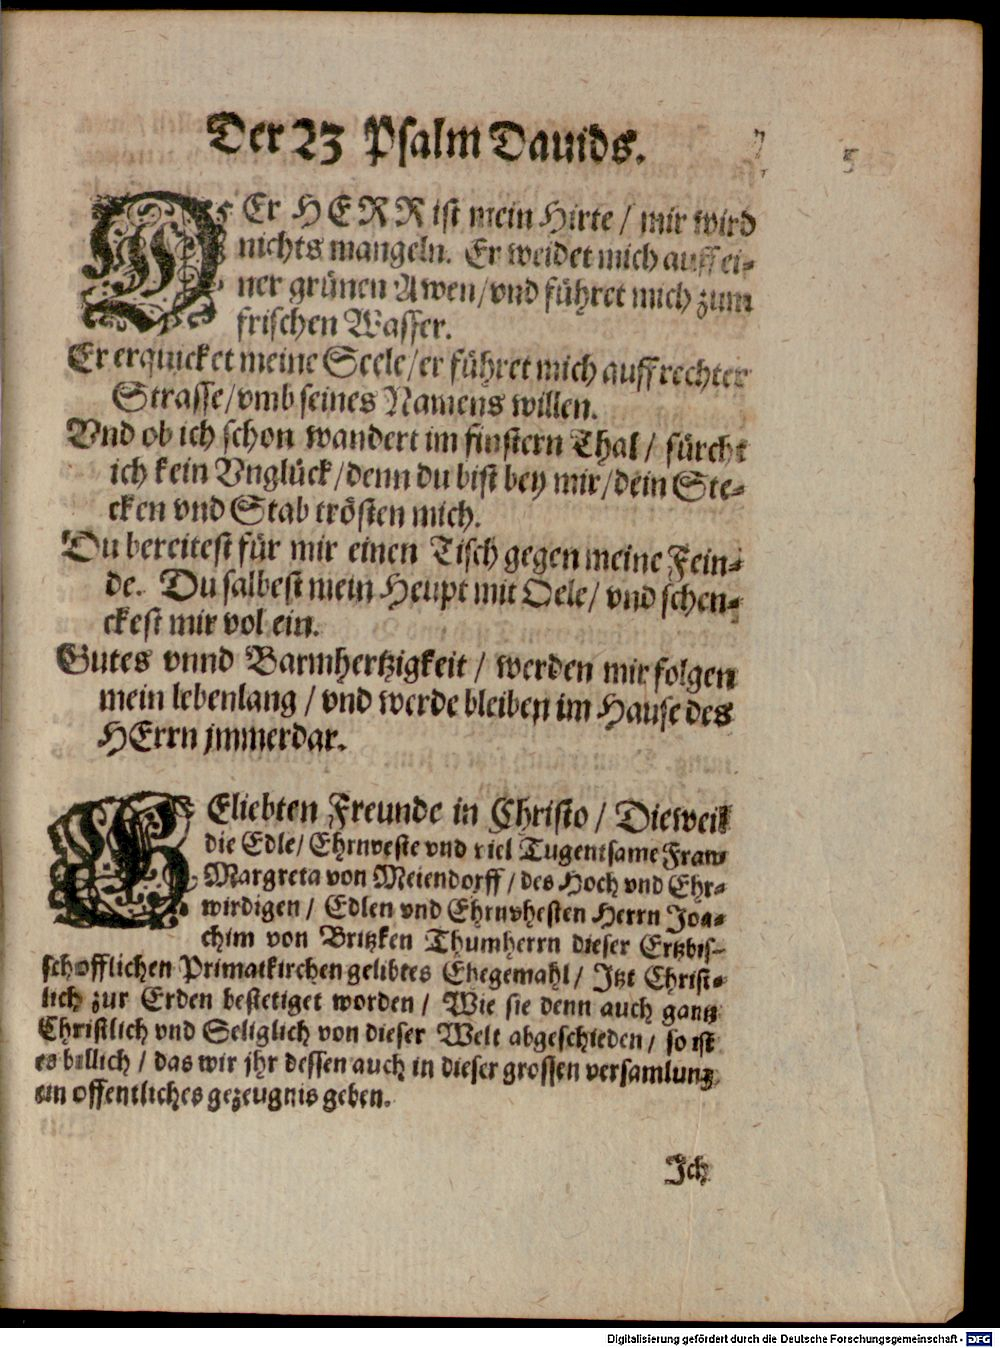 Der 23 Psalm Dauids.
5
DEr HERR ist mein Hirte / mir wird
nichts mangeln. Er weidet mich auff ei-
ner grünen Awen/vnd führet mich zum
frischen Wasser.
Er erquicket meine Seele/er führet mich auff rechter
Strasse/vmb seines Namens willen.
Vnd ob ich schon wandert im finstern Thal / fürcht
ich kein Vnglück/denn du bist bey mir/dein Ste-
cken vnd Stab trösten mich.
Du bereitest für mir einen Tisch gegen meine Fein-
de. Du salbest mein Heupt mit Oele/ vnd schen-
ckest mir vol ein.
Gutes vnnd Barmhertzigkeit / werden mir folgen
mein lebenlang / vnd werde bleiben im Hause des
HErrn jmmerdar.
GEliebten Freunde in Christo / Dieweil
die Edle/ Ehrnveste vnd viel Tugentsame Fraw
Margreta von Meiendorff / des Hoch vnd Ehr-
wirdigen / Edlen vnd Ehrnvhesten Herrn Joa-
chim von Britzken Thumherrn dieser Ertzbis-
schofflichen Primatkirchen gelibtes Ehegemahl/ Jtzt Christ-
lich zur Erden bestetiget worden / Wie sie denn auch gantz
Christlich vnd Seliglich von dieser Welt abgeschieden / so ist
es billich / das wir jhr dessen auch in dieser grossen versamlung
ein offentliches gezeugnis geben.
Jch
Digitalisierung gefördert durch die Deutsche Forschungsgemeinschaft - DFG